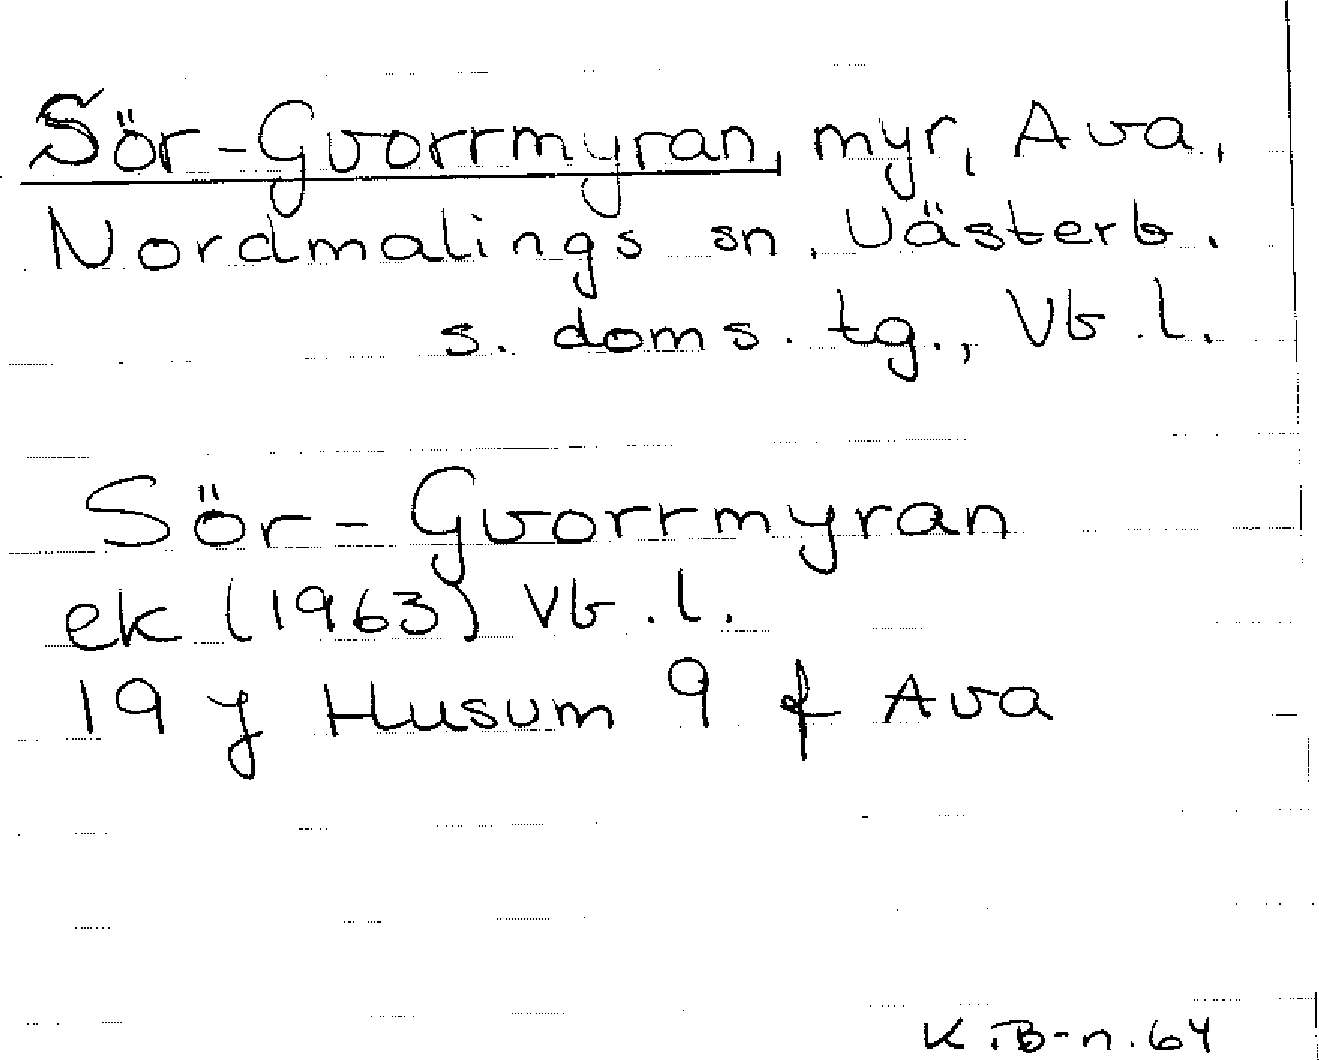 Sör-Gvorrmyran, myr, Ava,
Nordmalings sn, Västerb.
s. doms. tg., Vb. l.
Sör-Gvorrmyran
ek (1963) Vb. l.
19 J Husum 9 f Ava
K. B-n. 64